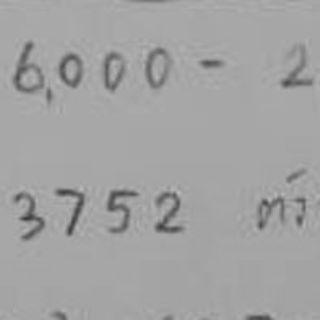 6,000 - 2
3752